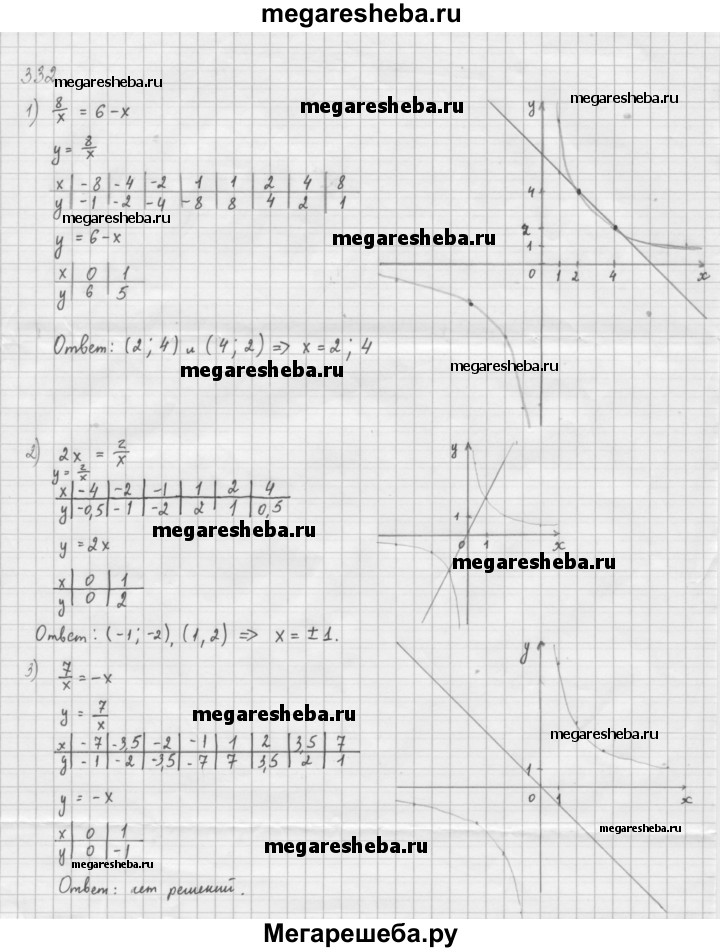 megaresheba.ru
332
megaresheba.ru
1) 8/x = 6 - x
megaresheba.ru
megaresheba.ru
y = 8/x
x | -8 | -4 | -2 | 1 | 1 | 2 | 4 | 8
y | -1 | -2 | -4 | -8 | 8 | 4 | 2 | 1
megaresheba.ru
y = 6 - x
megaresheba.ru
x | 0 | 1
y | 6 | 5
y
4
2
1
0 1 2 4 x
Ответ: (2; 4) и (4; 2) => x = 2; 4
megaresheba.ru
megaresheba.ru
2) 2x = 2/x
y = 2/x
x | -4 | -2 | -1 | 1 | 2 | 4
y | -0,5 | -1 | -2 | 2 | 1 | 0,5
megaresheba.ru
y = 2x
x | 0 | 1
y | 0 | 2
y
1
0 1 x
megaresheba.ru
Ответ: (-1; -2), (1, 2) => x = ±1.
3) 7/x = -x
y = 7/x
megaresheba.ru
x | -7 | -3,5 | -2 | -1 | 1 | 2 | 3,5 | 7
y | -1 | -2 | -3,5 | -7 | 7 | 3,5 | 2 | 1
y = -x
x | 0 | 1
y | 0 | -1
megaresheba.ru
megaresheba.ru
y
megaresheba.ru
1
0 1 x
megaresheba.ru
Ответ: нет решений.
Мегарешеба.ру